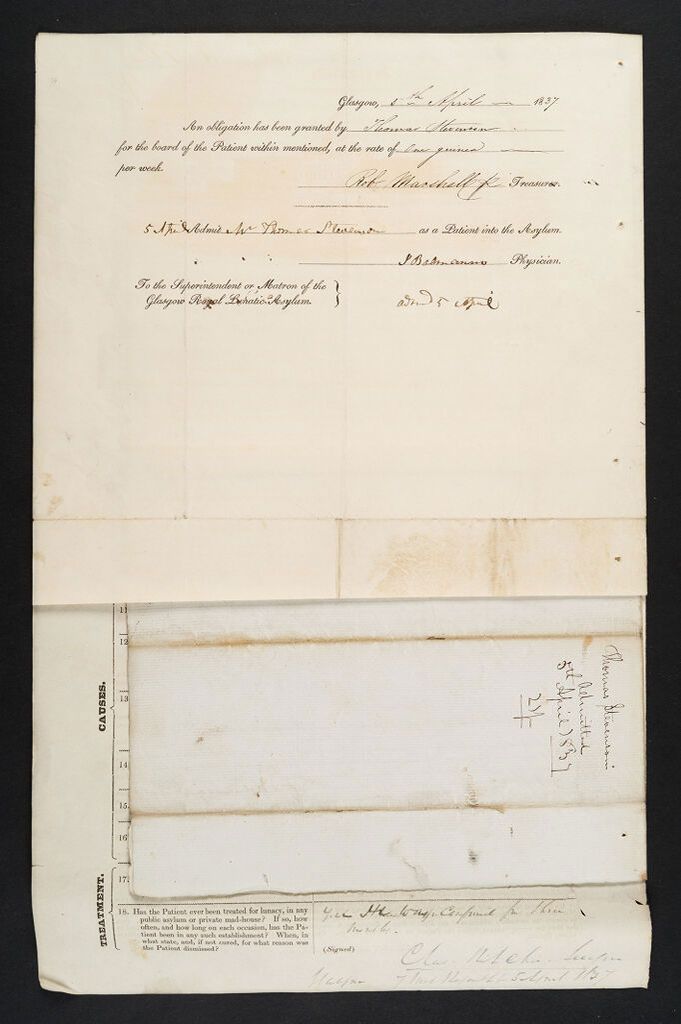 Glasgow, 5th April 1837
An obligation has been granted by Thomas Stevenson
for the board of the Patient within mentioned, at the rate of One guinea
per week.
Rob. Marshall Jr Treasurer.
5 April Admit Mr Thomas Stevenson as a Patient into the Asylum.
J Balmanno Physician.
To the Superintendent or Matron of the
Glasgow Royal Lunatic Asylum.
admd 5 April
11
12
CAUSES.
13
14
15
16
17
Thomas Stevenson
Admitted
5th April 1837
24
TREATMENT.
18. Has the Patient ever been treated for lunacy, in any
public asylum or private mad-house? If so, how
often, and how long on each occasion, has the Pa-
tient been in any such establishment? When, in
what state, and, if not cured, for what reason was
the Patient dismissed?
Confined for three
months.
(Signed)
5 April 1837